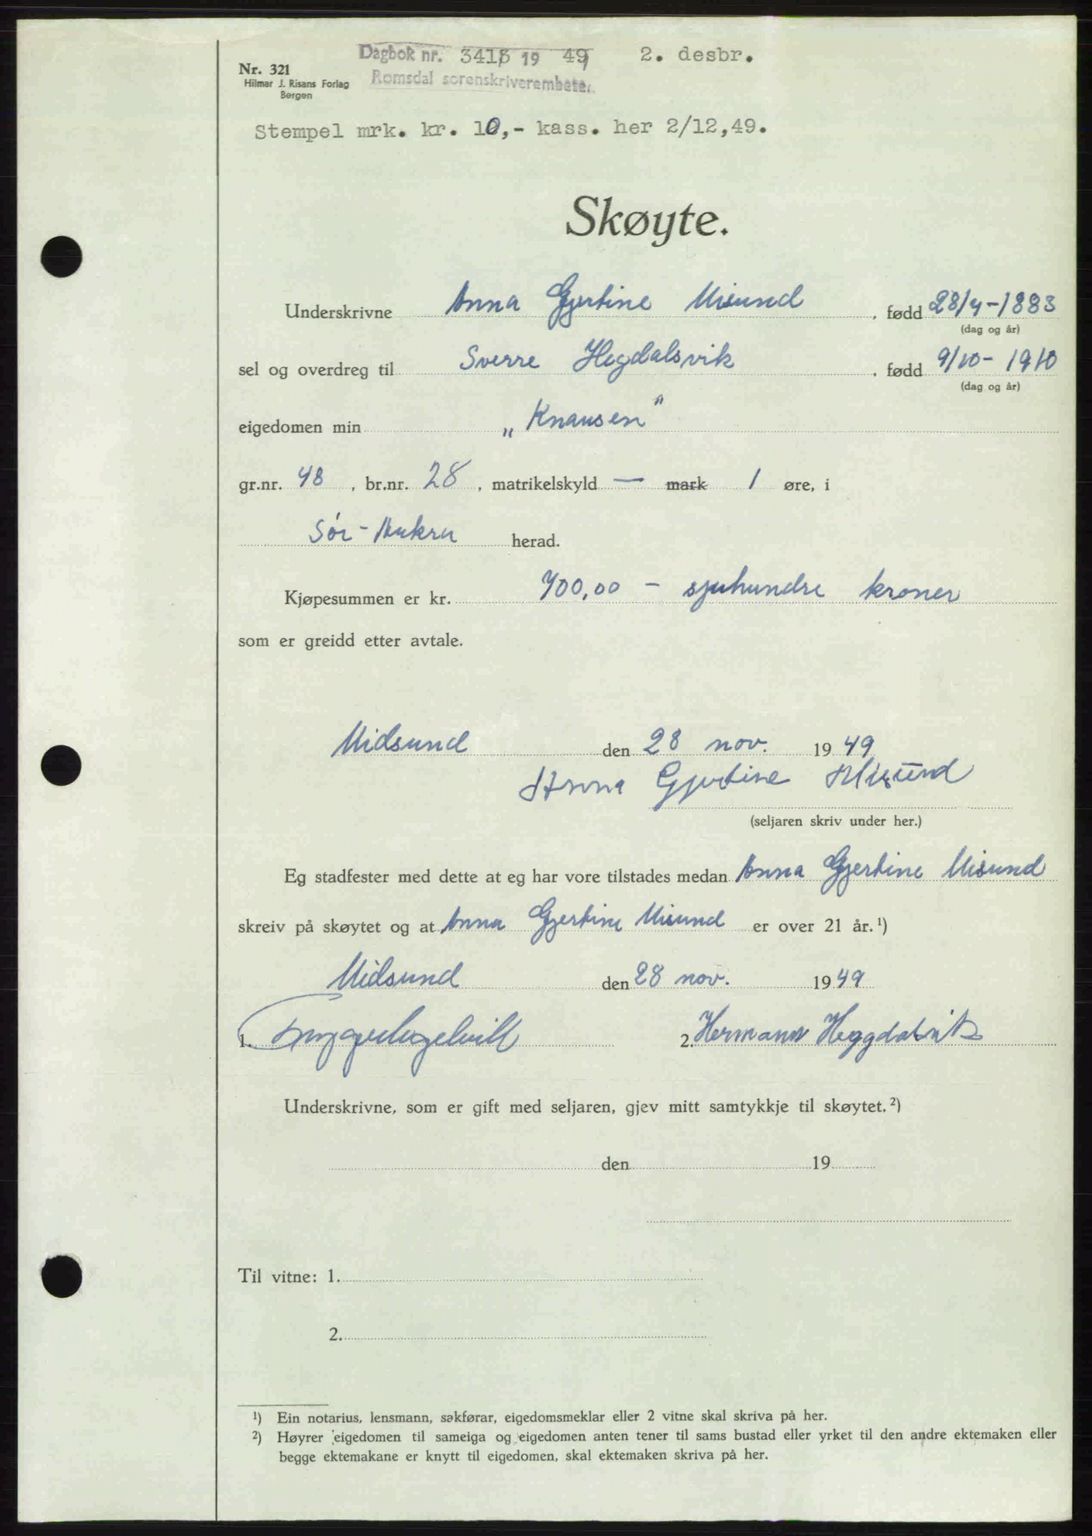 Dagbok nr. 3413 19 49 2. desbr.
Nr. 321
Romsdal sorenskriverembete.
Hilmar J. Risans Forlag
Bergen
Stempel mrk. kr. 10,- kass. her 2/12,49.
Skøyte.
Underskrivne Anna Gjertine Misund, fødd 28/4-1883
(dag og år)
sel og overdreg til Sverre Hegdalsvik, fødd 9/10-1910
(dag og år)
eigedomen min „Knausen"
gr.nr. 48, br.nr. 28, matrikelskyld — mark 1 øre, i
Sør-Aukra herad.
Kjøpesummen er kr. 700,00 - sjuhundre kroner
som er greidd etter avtale.
Midsund den 28 nov. 1949
Anna Gjertine Misund
(seljaren skriv under her.)
Eg stadfester med dette at eg har vore tilstades medan Anna Gjertine Misund
skreiv på skøytet og at Anna Gjertine Misund er over 21 år.¹)
Midsund den 28 nov. 1949
1. 2. Hermann Heggdalsvik
Underskrivne, som er gift med seljaren, gjev mitt samtykkje til skøytet.²)
den 19
Til vitne: 1.
2.
¹) Ein notarius, lensmann, sakførar, eigedomsmeklar eller 2 vitne skal skriva på her.
²) Høyrer eigedomen til sameiga og eigedomen anten tener til sams bustad eller yrket til den andre ektemaken eller
begge ektemakane er knytt til eigedomen, skal ektemaken skriva på her.